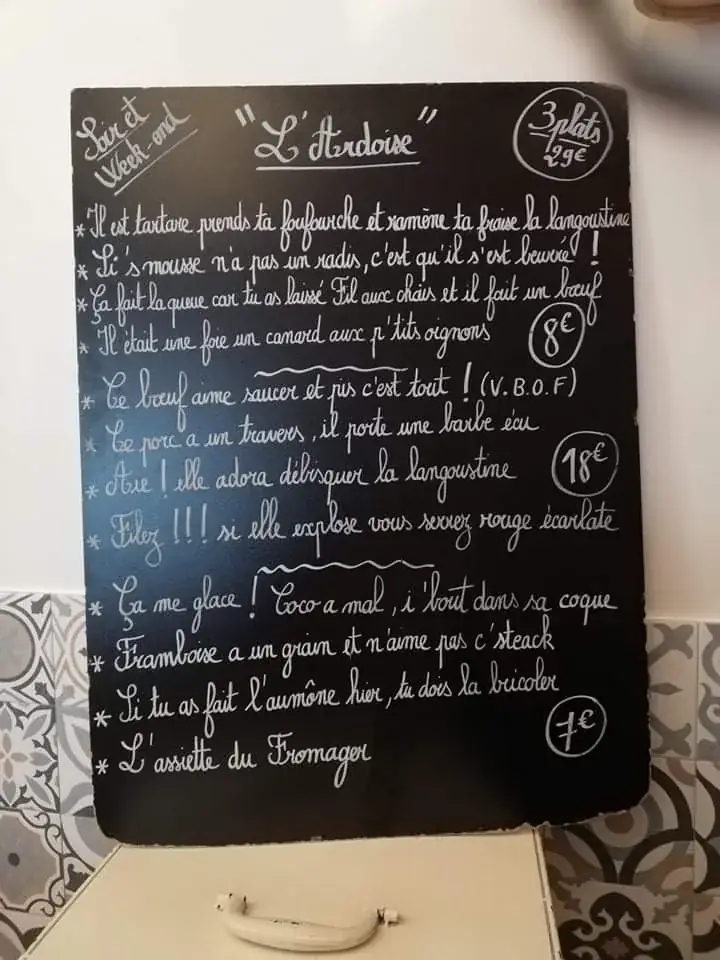 Soir et
Week-end
"L'Ardoise"
3 plats
29€
* Il est tartare prends ta foufourche et ramène ta fraise la langoustine
* Si s'mousse n'a pas un radis, c'est qu'il s'est beurré !
* Ça fait la queue car tu as laissé Fil aux chais et il fait un bœuf
* Il était une foie un canard aux p'tits oignons
8€
* Ce bœuf aime saucer et pis c'est tout ! (V.B.O.F)
* Ce porc a un travers, il porte une barbe écu
* Aïe ! elle adora débisquer la langoustine
18€
* Filez !!! si elle explose vous serrez rouge écarlate
* Ça me glace ! Coco a mal, i'bout dans sa coque
* Framboise a un grain et n'aime pas c'steack
* Si tu as fait l'aumône hier, tu dois la bricoler
7€
* L'assiette du Fromager